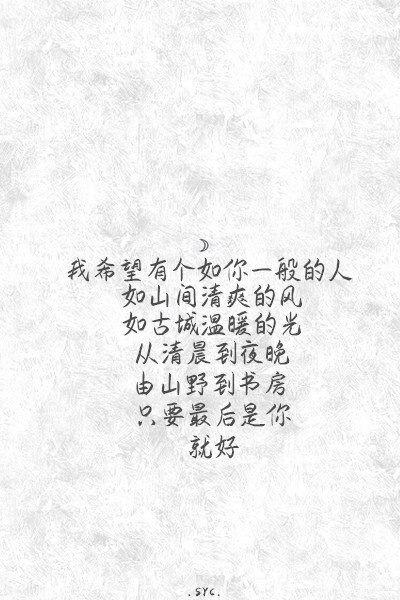 我希望有个如你一般的人
如山间清爽的风
如古城温暖的光
从清晨到夜晚
由山野到书房
只要最后是你
就好
. SYC .